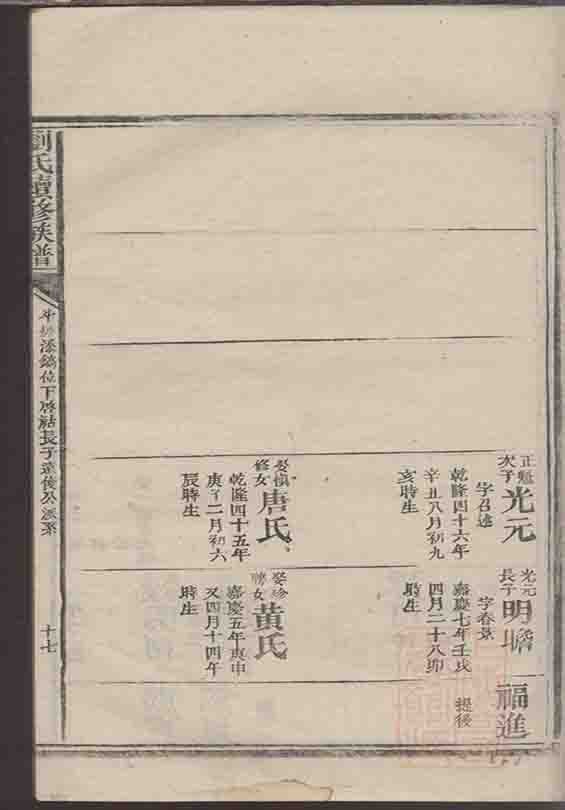 正魁
次子
光元
字召述
乾隆四十六年
辛丑八月初九
亥時生
娶慎
修女
唐氏
乾隆四十五年
庚子二月初六
辰時生
光元
長子
明
字春景
嘉慶七年壬戌
四月二十八卯
時生
娶珍
女
黃氏
嘉慶五年庚申
又四月十四午
時生
福進
提後
劉氏續修族譜
位下啓祜長子
派系
十七